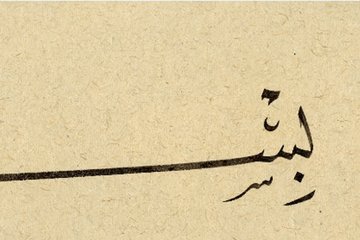 بِسْـ